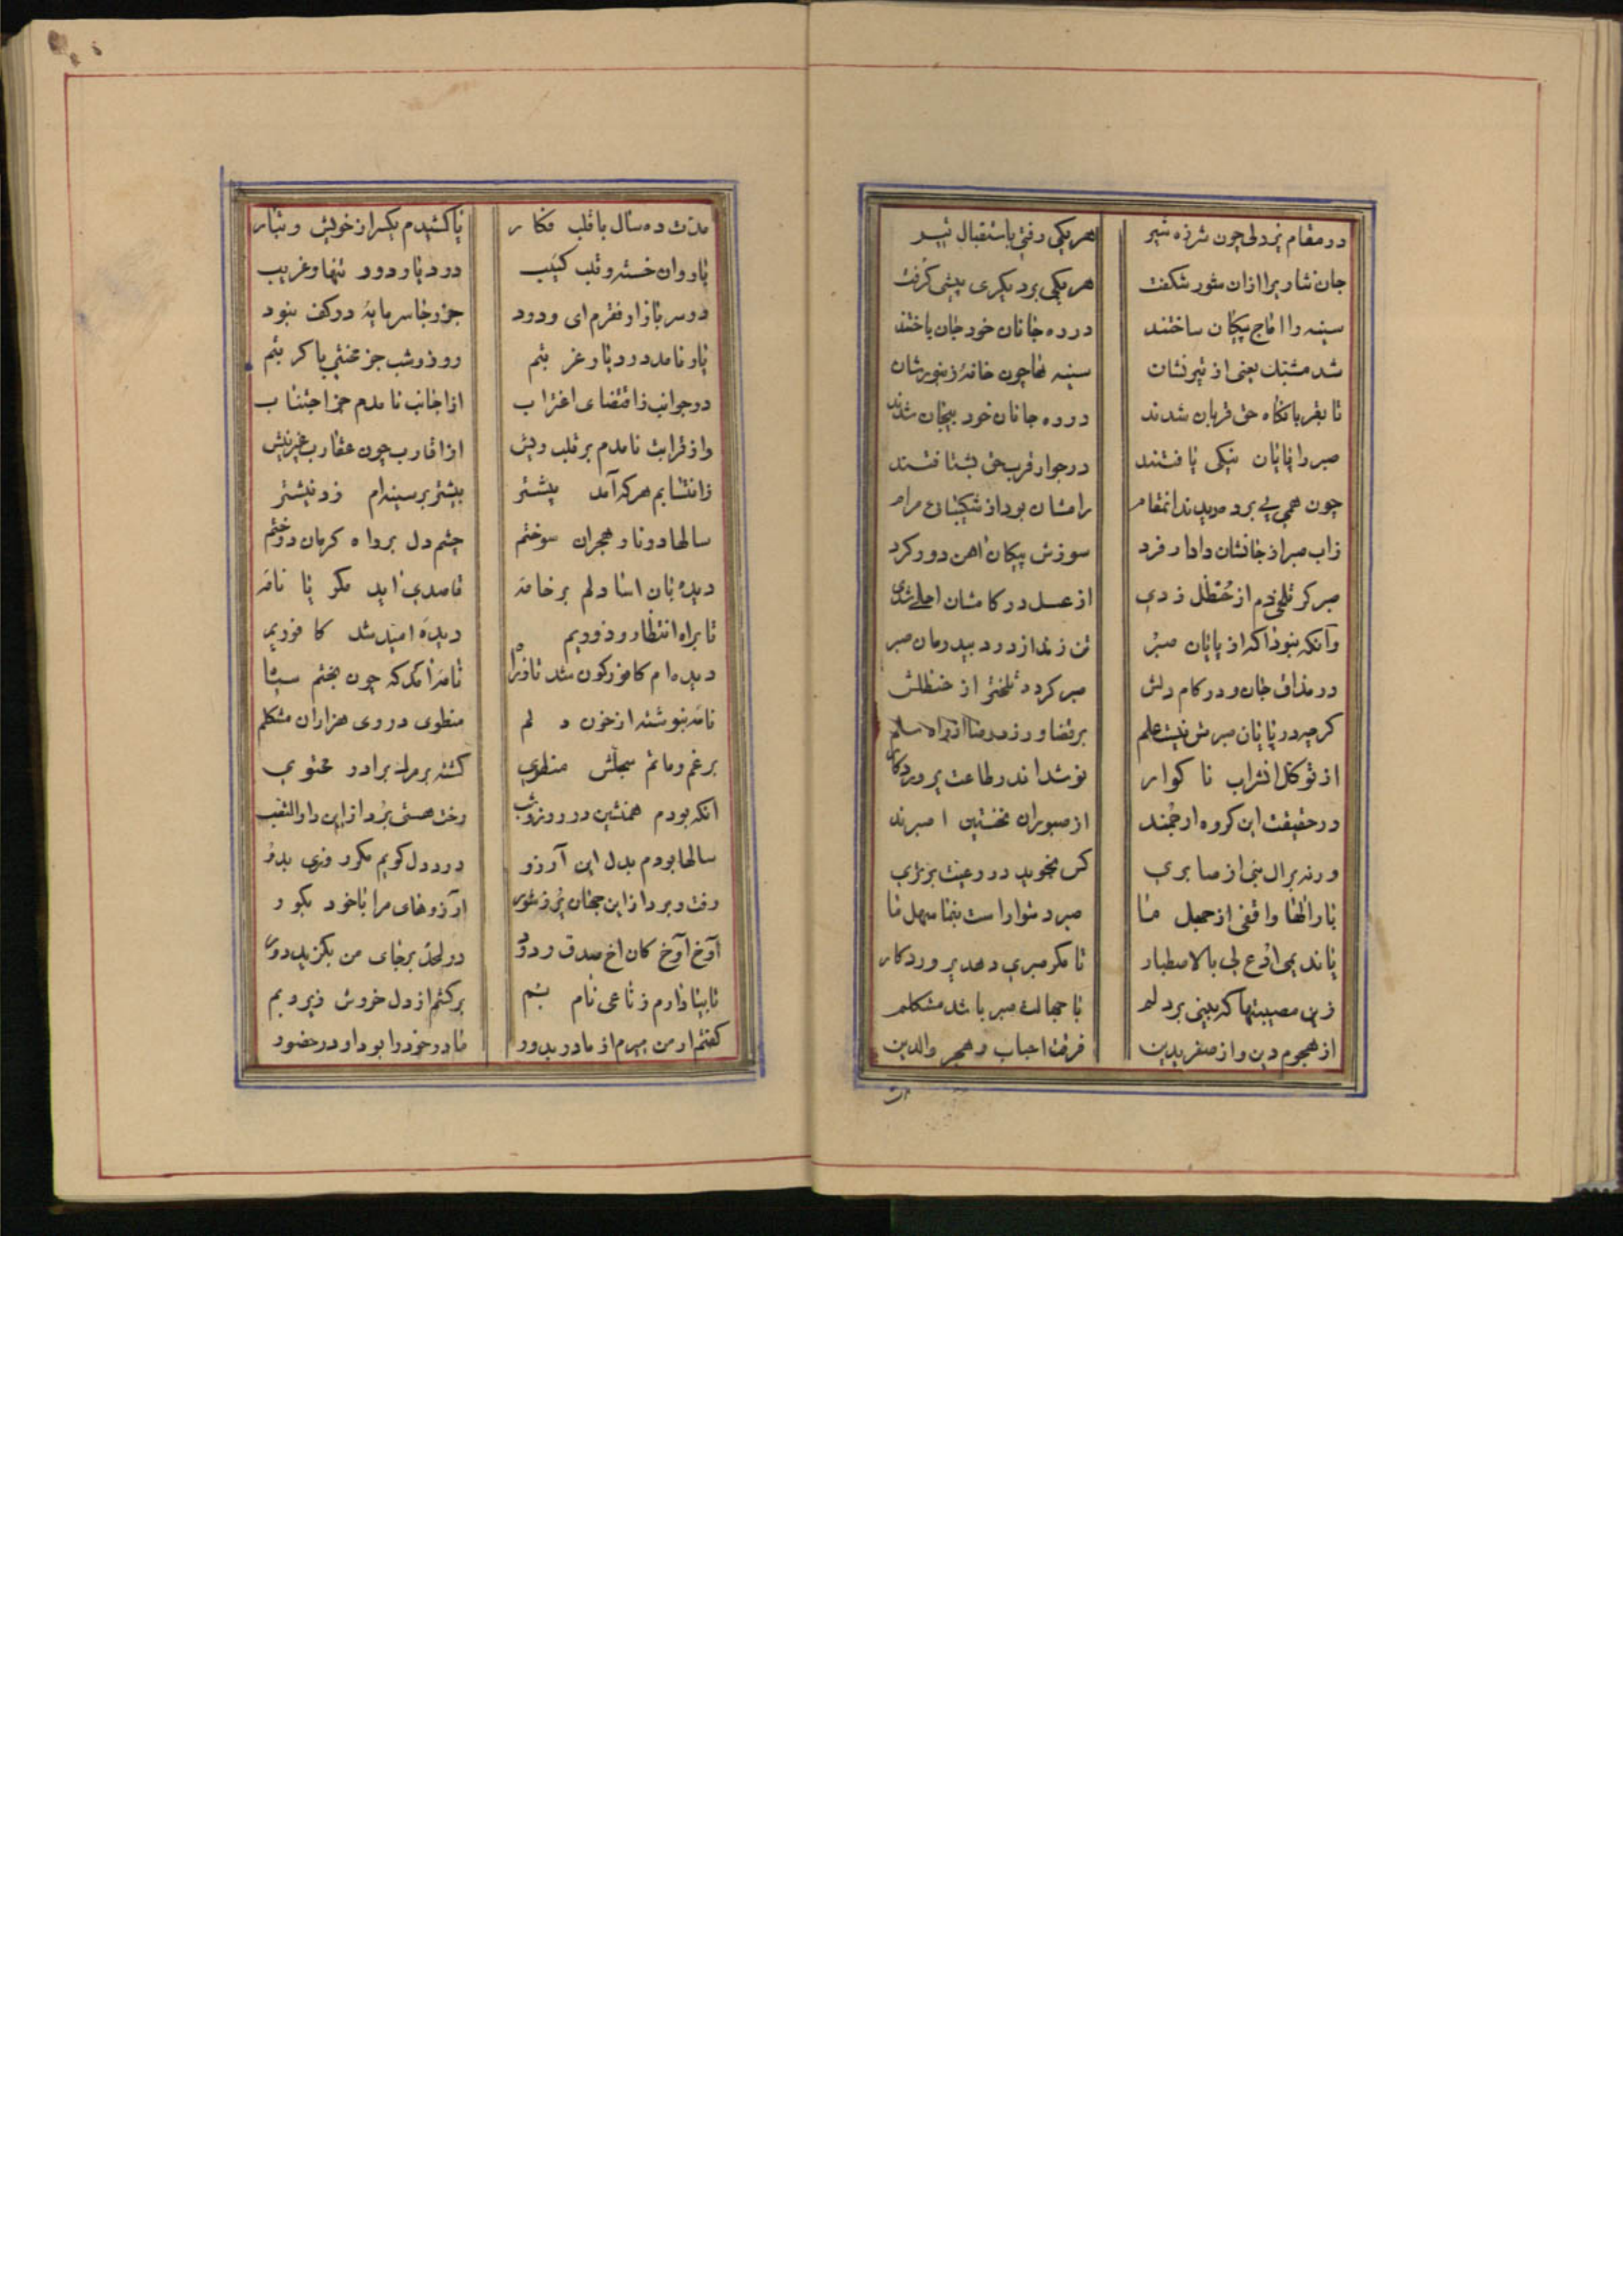 در مقام پردلی چون شرزه شیر هر یکی رفتی باستقبال تیر
جان نثاریرا ازان شور شکفت هر یکی بر دیگری پیشی گرفت
سینه را اماج پیکان ساختند در ره جانان خود جان باختند
شد مشبك یعنی از تیر نشان سینه ها چون خانهٔ زنبورشان
تا بقربانگاه حق قربان شدند در ره جانان خود بیجان شدند
صبر را پایان نیکی یافتند در جوار قرب حق بشتافتند
چون همی پی برده بودند انمقام رامشان بود از شکیبائی مرام
زاب صبر از جانشان دادار فرد سوزش پیکان اهن دور کرد
صبر کز تلخی دم از حُنظل زدی از عسل در کامشان احلی شدی
وآنکه نبود آکه از پایان صبر تن زند از درد بیدرمان صبر
در مذاق جان و در کام دلش صبر کردد تلختر از حنظلش
کرچه در پایان صبرش نیست علم بر قضا ورزد رضا از راه سلم
از توکل انشراب نا کوار نوشد اندر طاعت پروردکار
در حقیقت این کروه ارجمند از صبوران نخستین اصبرند
ورنه بر ال نبی از صابری کس نجوید در رعیت برتری
بار الها واقفی از جهل ما صبر دشوار است بنما سهل ما
یا ندیمی افرغ لی بالاصطبار تا مکر صبری دهد پروردکار
زین مصیبتها که بینی بر دلم با جهالت صبر باشد مشکلم
از هجوم دین و از صفر یدین فرقت احباب و هجر والدین
مدت ده سال با قلب فکار پا کشیدم یکسر از خویش و تبار
با روان خسته و قلب کئیب در دیار دور تنها و غریب
در سر بازار فقرم ای ودود جز رجا سرمایهٔ در کف نبود
یار نامد در دیار غربتم روز و شب جز محنتی یا کربتم
در جوانب ز اقتضای اغتراب از اجانب نامدم جز اجتناب
واز قرابت نامدم بر قلب ریش از اقارب چون عقارب غیر نیش
ز انتسابم هر که آمد پیشتر بیشتر بر سینه‌ام زد نیشتر
سالها در نار هجران سوختم چشم دل بر راه کرمان دوختم
دیده بان اسا دلم بر خامه قاصدی اید مکر با نامه
تا براه انتظار روز و ویم دیدهٔ امید شد کافوریم
دیده‌ام کافورکون شد تا فرا نامه آمد که چون بختم سیا
نامه بنوشته از خون دلم منطوی در وی هزاران مشکلم
بر غم و ماتم سجلش منطوی کشته بر مرک برادر محتوی
انکه بودم همنشین در روز و شب رخت هستی برد از این دار التعب
سالها بودم بدل این آرزو درد دل کویم مکرر نزد او
رفت و برد از این جهان پر ز شور آرزوهای مرا با خود بکور
آوخ آوخ کان اخ صدق و دود در لحد بر جای من بکزید زود
تا بیاد آرم ز ناعی نام بم برکشم از دل خروش زیر و بم
کفتم ار من میرم از مادر بدور مادر خود را بود او در حضور